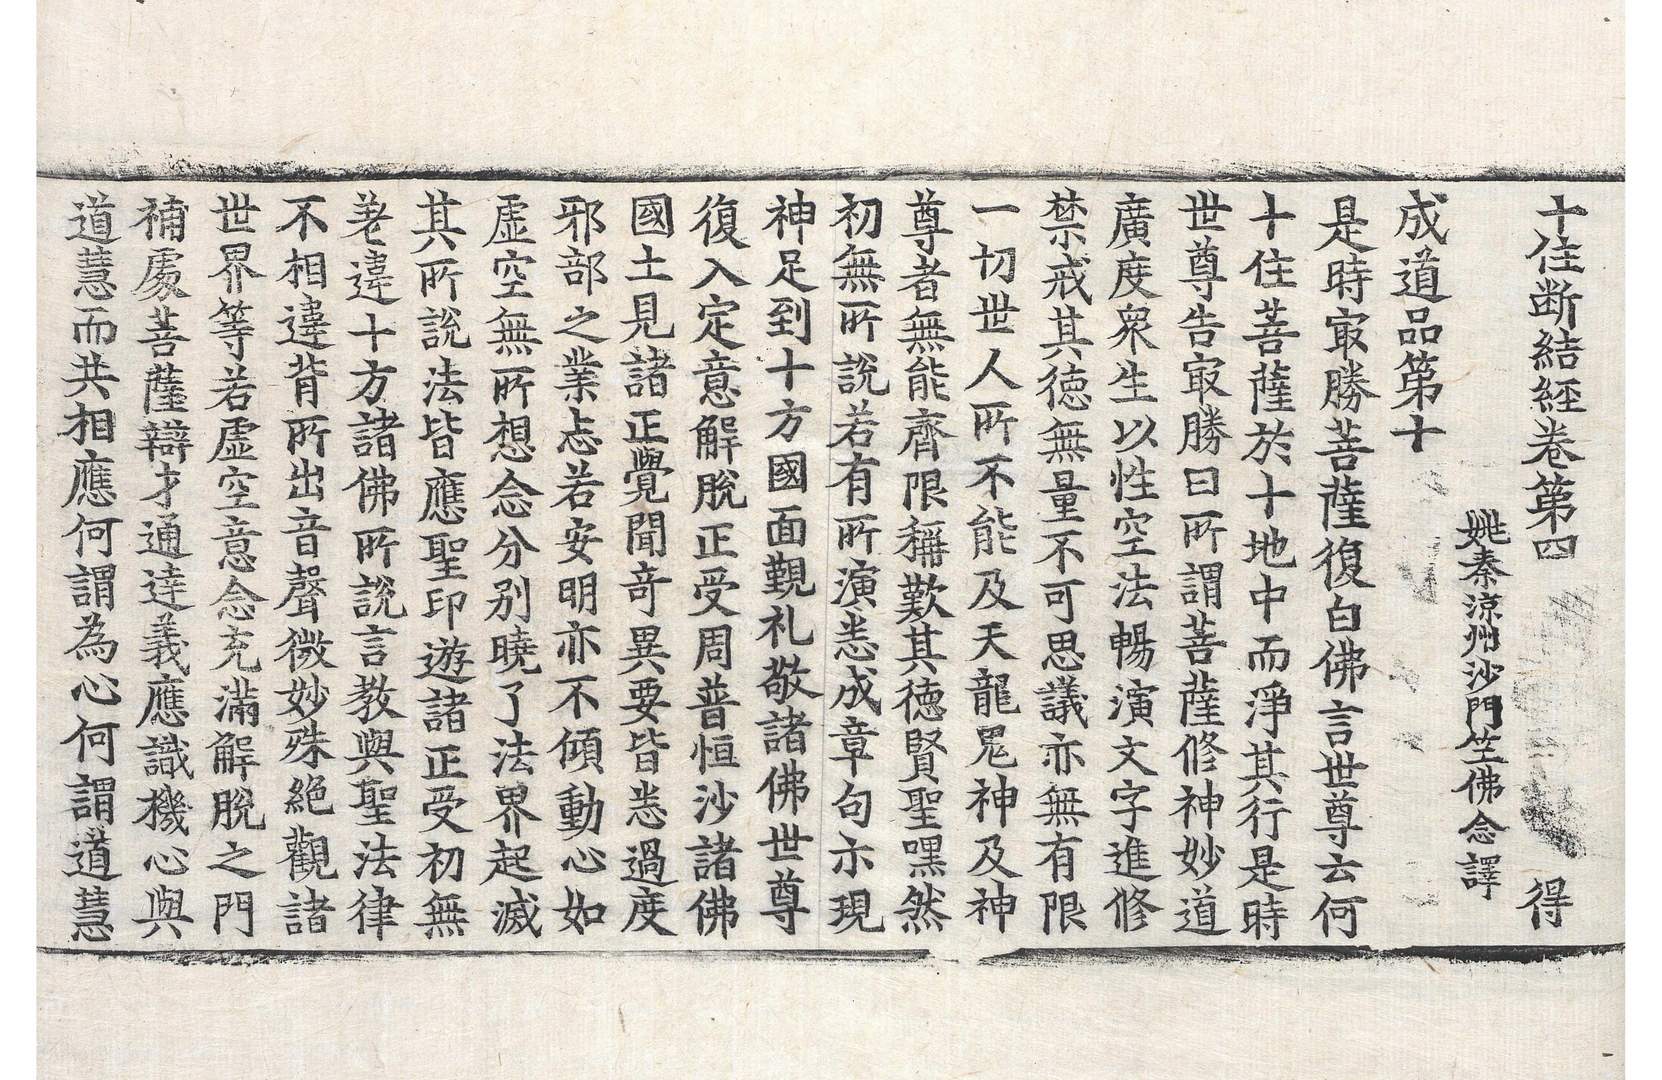 十住断結経巻第四　得
姚秦涼州沙門竺佛念譯
成道品第十
是時㝡勝菩薩復白佛言世尊云何
十住菩薩於十地中而淨其行是時
世尊告㝡勝曰所謂菩薩修神妙道
廣度衆生以性空法暢演文字進修
禁戒其徳無量不可思議亦無有限
一切世人所不能及天龍鬼神及神
尊者無能齊限稱歎其徳賢聖嘿然
初無所說若有所演悉成章句示現
神足到十方國面覲礼敬諸佛世尊
復入定意解脫正受周普恒沙諸佛
國土見諸正覺聞竒異要皆悉過度
邪部之業志若安明亦不傾動心如
虚空無所想念分別曉了法界起滅
其所說法皆應聖印遊諸正受初無
差違十方諸佛所說言教與聖法律
不相違背所出音聲微妙殊絶觀諸
世界等若虚空意念充滿解脫之門
補處菩薩辯才通達義應識機心與
道慧而共相應何謂為心何謂道慧